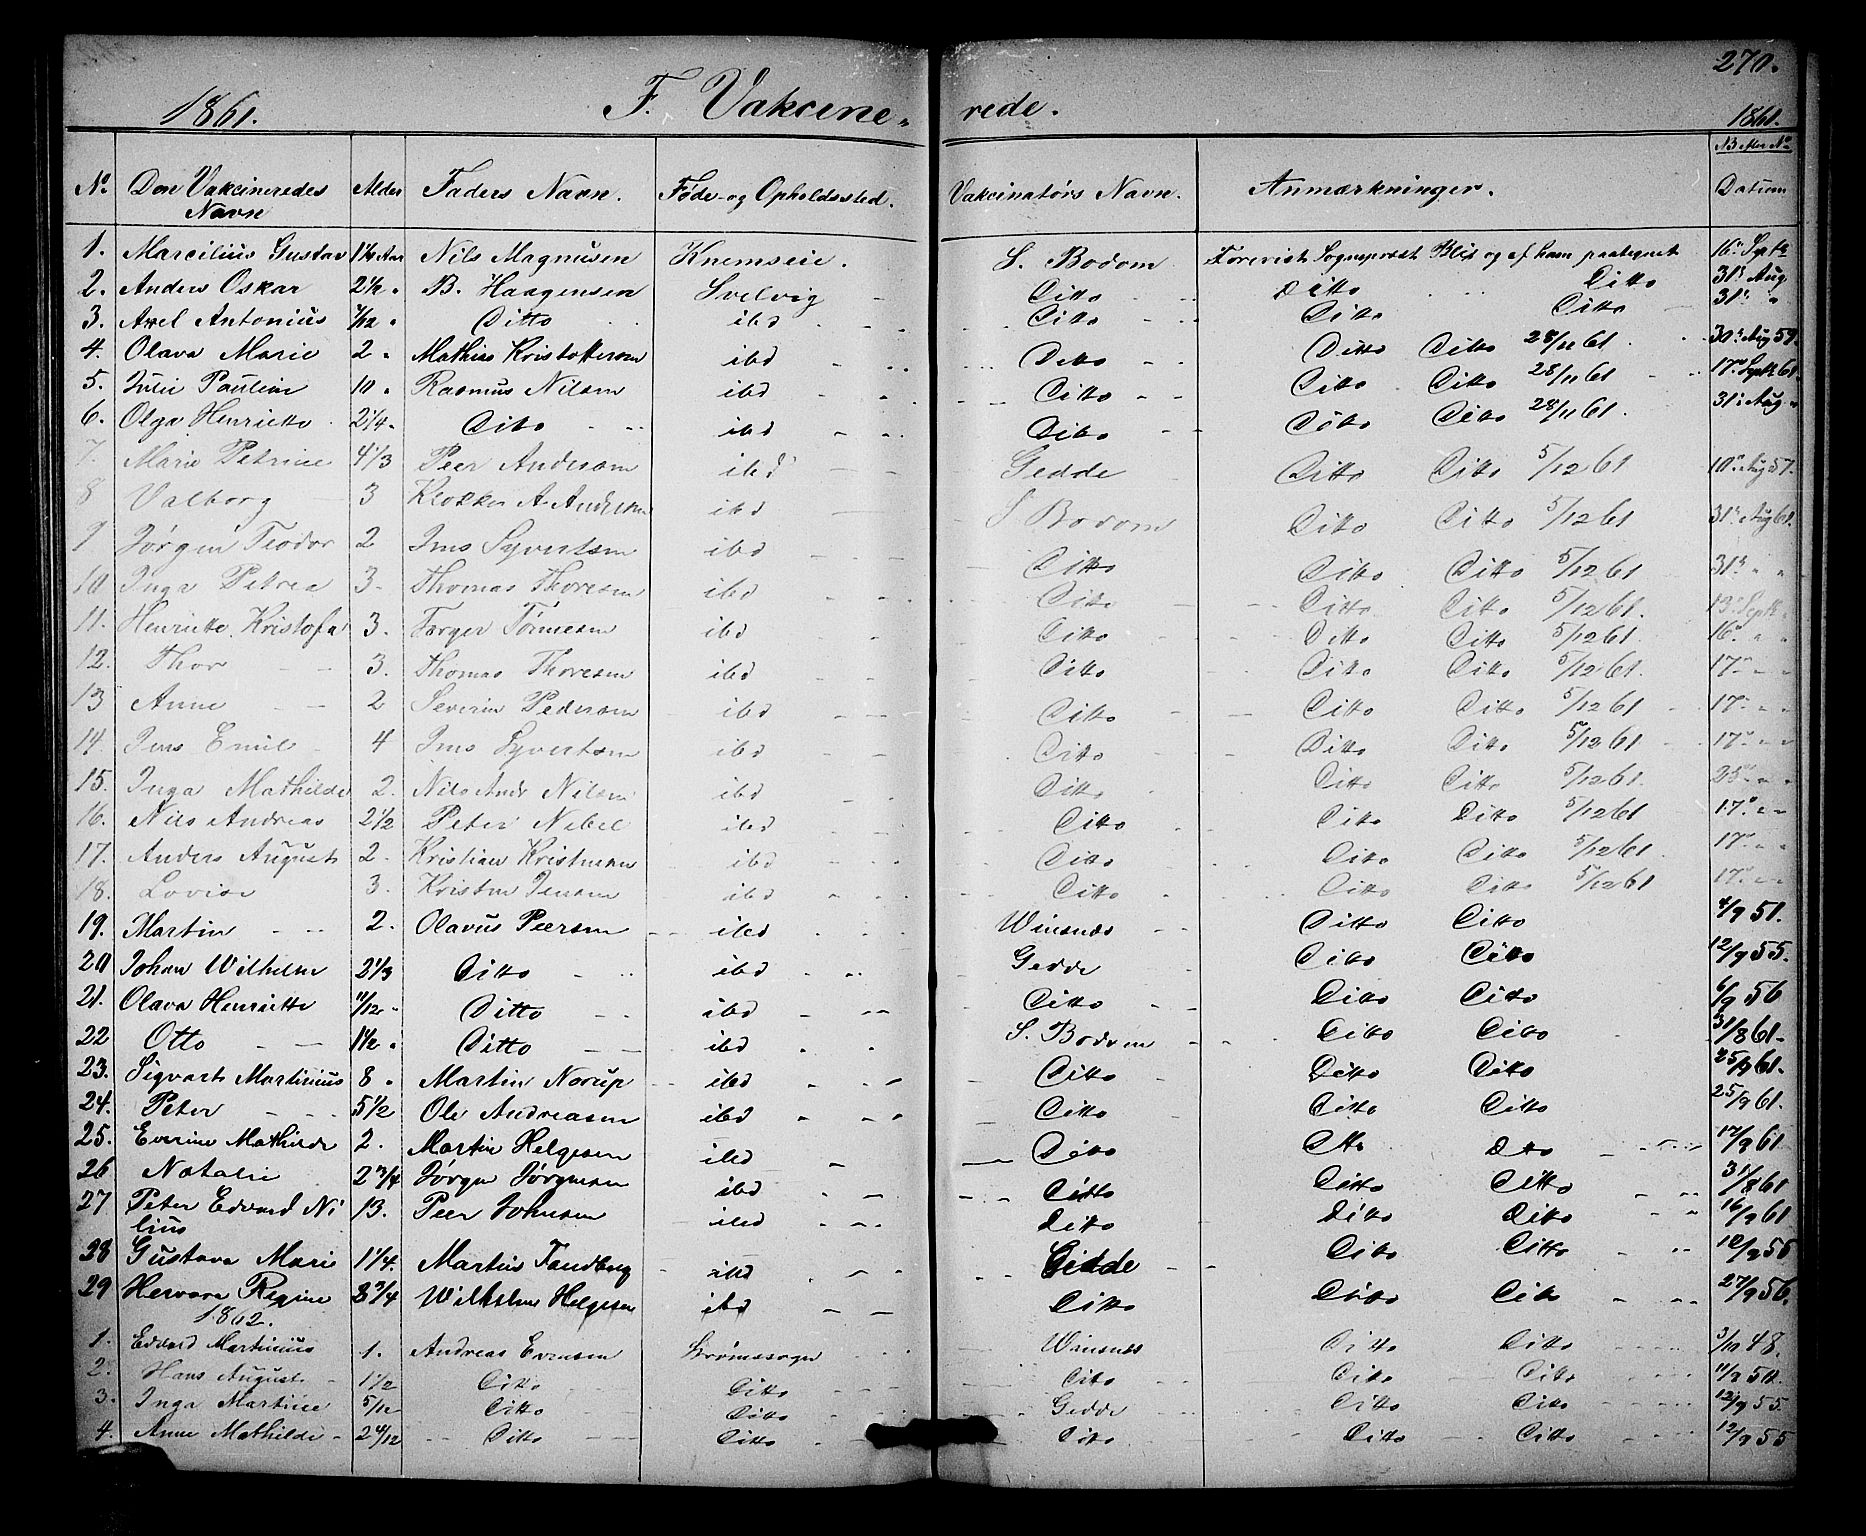 270.
1861. F. Vakcine- rede. 1861.
No Den Vakcineredes Navn Alder Faders Navn. Føde- og Opholdssted. Vakcinatørs Navn. Anmærkninger. Datum
1. Marcilius Gustav 1¼ Aar Nils Magnusen Knemseie. S. Bodom Forevist Sogneprest Blis og af ham paategnet 16de Septr
2. Anders Oskar 2½ " B. Haagensen Svelvig Ditto Ditto Ditto 31te Aug
3. Axel Antonius 7/12 " Ditto ibd Ditto Ditto Ditto 31te "
4. Olava Marie 2 " Mathias Kristoffersen ibd Ditto Ditto Ditto 28/11 61. 30te Aug 59.
5. Julie Pauline 10 " Rasmus Nilsen ibd Ditto Ditto Ditto 28/11 61 17de Septr 61.
6. Olga Henriette 2¼ " Ditto ibd Ditto Ditto Ditto 28/11 61. 31te Aug "
7. Marie Petrine 4⅓ Peer Andersen ibd Gedde Ditto Ditto 5/12 61 10de Aug 57.
8 Valborg 3 Klokker A. Andersen ibd S Bodom Ditto Ditto 5/12 61 31te Aug 61.
9 Jørgen Teodor 2 Jens Syvertsen ibd Ditto Ditto Ditto 5/12 61 31te " "
10 Inga Petrea 3. Thomas Thoresen ibd Ditto Ditto Ditto 5/12 61. 13de Septr "
11. Henriette Kristofa 3. Torger Tönnesen ibd Ditto Ditto Ditto 5/12 61. 16de " "
12. Thor 3. Thomas Thoresen ibd Ditto Ditto Ditto 5/12 61. 17de " "
13 Anne 2 Severin Pedersen ibd Ditto Ditto Ditto 5/12 61 17de " "
14. Jens Emil 4 Jens Syvertsen ibd Ditto Ditto Ditto 5/12 61. 17de " "
15. Inga Mathilde 2. Nils Andr Nilsen ibd Ditto Ditto Ditto 5/12 61. 25de " "
16. Nils Andreas 2½ Peter Nebel ibd Ditto Ditto Ditto 5/12 61 17de " "
17. Anders August 2. Kristian Kristensen ibd Ditto Ditto Ditto 5/12 61. 17de " "
18. Lovise 3. Kristen Jensen ibd Ditto Ditto Ditto 5/12 61 17de " "
19. Martin 2. Olavus Peersen ibd Winsnes Ditto Ditto 4/9 51.
20 Johan Wilhelm 2⅓ Ditto ibd Gedde Ditto Ditto 12/9 55.
21. Olava Henriette 11/12 " Ditto ibd Ditto Ditto Ditto 6/9 56
22 Otto 1½ " Ditto ibd S. Bodom Ditto Ditto 31/8 61.
23. Sigvart Martinius 8 " Martin Norup ibd Ditto Ditto Ditto 25/9 61.
24. Peter 5½ Ole Andreasen ibd Ditto Ditto Ditto 25/9 61.
25. Everine Mathilde 2. Martin Helgesen ibd Ditto Dtto Dtto 17/9 61
26 Natalie 2¾ Jørgen Jørgensen ibd Ditto Ditto Ditto 31/8 61
27 Peter Edvard Nilius 13. Peer Johnsen ibd Ditto Ditto Ditto 16/9 61
28 Gustava Marie 1¼. Martin Tandberg ibd Gedde Ditto Ditto 12/9 55
29 Hervara Regine 3¾ Wilhelm Helgesen ibd Ditto Ditto Ditto 27/9 56.
1862.
1. Edvard Martinius 1. Andreas Evensen Strömssogn Winsnes Ditto Ditto 3/10 48.
2. Hans August 1½ Ditto Ditto Ditto Ditto Ditto 11/9 50.
3. Inga Martine 5/12 Ditto Ditto Gedde Ditto Ditto 12/9 55
4. Anne Mathilde 2 4/12 Ditto Ditto Ditto Ditto Ditto 12/9 55